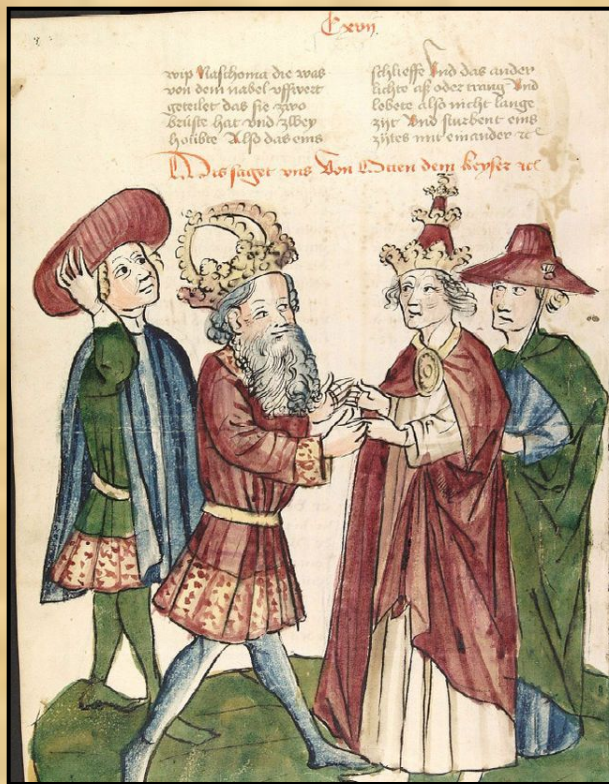 Cxvij
wip Naschoma die was
von dem nabel vffwert
geteilet das sie zwo
brüste hat vnd zwey
houbte Also das eins
schlieffe Vnd das ander
lichte aß oder trang Vnd
lebete also nicht lange
zijt Vnd sturbent eins
zytes mit einander ꝛc
Dis saget vns Von Otten dem keyser ꝛc